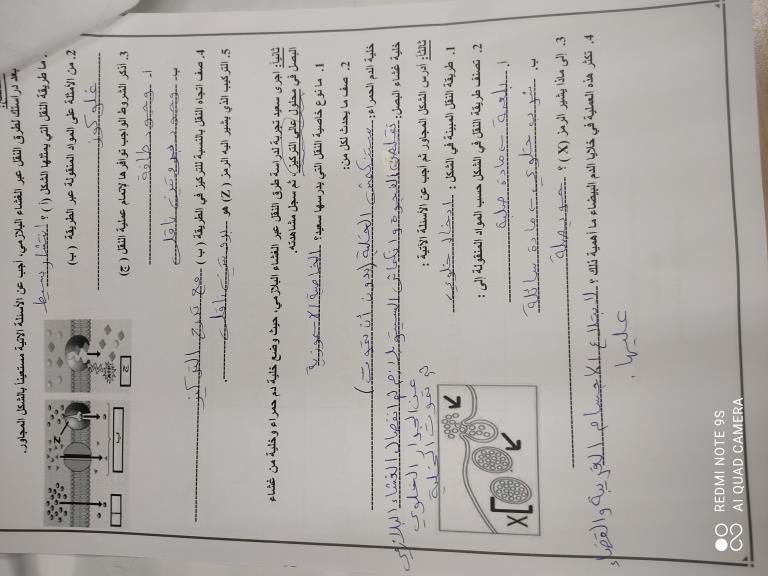 بعد دراستك لطرق النقل عبر الغشاء البلازمي، أجب عن الأسئلة الآتية مستعيناً بالشكل المجاور.
1. ما طريقة النقل التي يمثلها الشكل ( أ ) ؟ انتشار بسيط
2. من الأمثلة على المواد المنقولة عبر الطريقة ( ب )
غلوكوز
3. اذكر الشروط الواجب توافرها لإتمام عملية النقل ( ج )
أ. وجود طاقة
ب. وجود بروتين ناقل
4. صف اتجاه النقل بالنسبة للتركيز في الطريقة ( ب ) مع تدرج التركيز
5. التركيب الذي يشير اليه الرمز ( Z ) هو بروتين ناقل
أ
ب
ج
Z
ثانياً: اجرى سعيد تجربة لدراسة طرق النقل عبر الغشاء البلازمي، حيث وضع خلية دم حمراء وخلية من غشاء
البصل في محلول عالي التركيز، ثم سجل مشاهداته.
1. ما نوع خاصية النقل التي يدرسها سعيد؟ الخاصية الاسموزية
2. صف ما يحدث لكل من:
خلية الدم الحمراء: ستنكمش الخلية (دون أن تموت)
خلية غشاء البصل: تقلص الفجوة وانكماش السيتوبلازم ثم انفصال الغشاء البلازمي
عن الجدار الخلوي
ثم تموت الخلية
ثالثاً: ادرس الشكل المجاور ثم أجب عن الأسئلة الآتية :
1. طريقة النقل المبينة في الشكل : ادخال خلوي
2. تصنف طريقة النقل في الشكل حسب المواد المنقولة الى :
أ. البلعمة ← مادة صلبة
ب. شرب خلوي ← مادة سائلة
3. إلى ماذا يشير الرمز ( X ) ؟ حويصلة
4. تكثر هذه العملية في خلايا الدم البيضاء ما أهمية ذلك ؟ ابتلاع الاجسام الغريبة والقضاء
عليها.
X
REDMI NOTE 9S
AI QUAD CAMERA